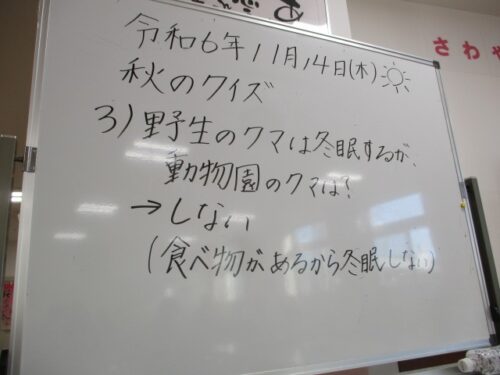 令和6年11月14日(木)
秋のクイズ
3)野生のクマは冬眠するが、
動物園のクマは?
→しない
(食べ物があるから冬眠しない)
さわや